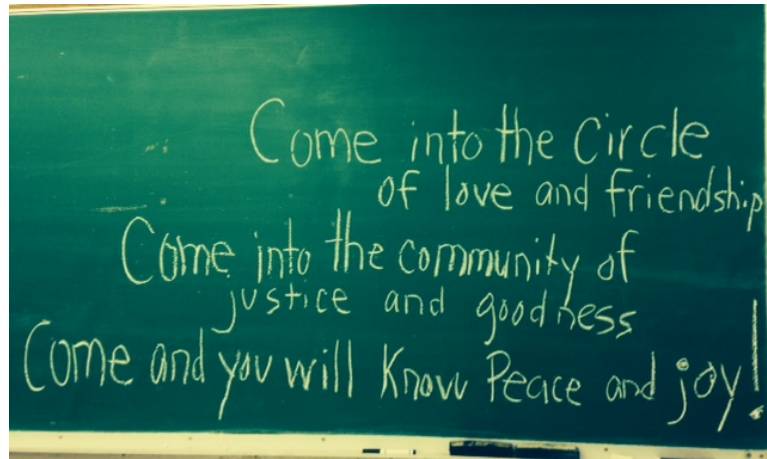 Come into the Circle
of love and friendship
Come into the community of
justice and goodness
Come and you will Know Peace and joy!